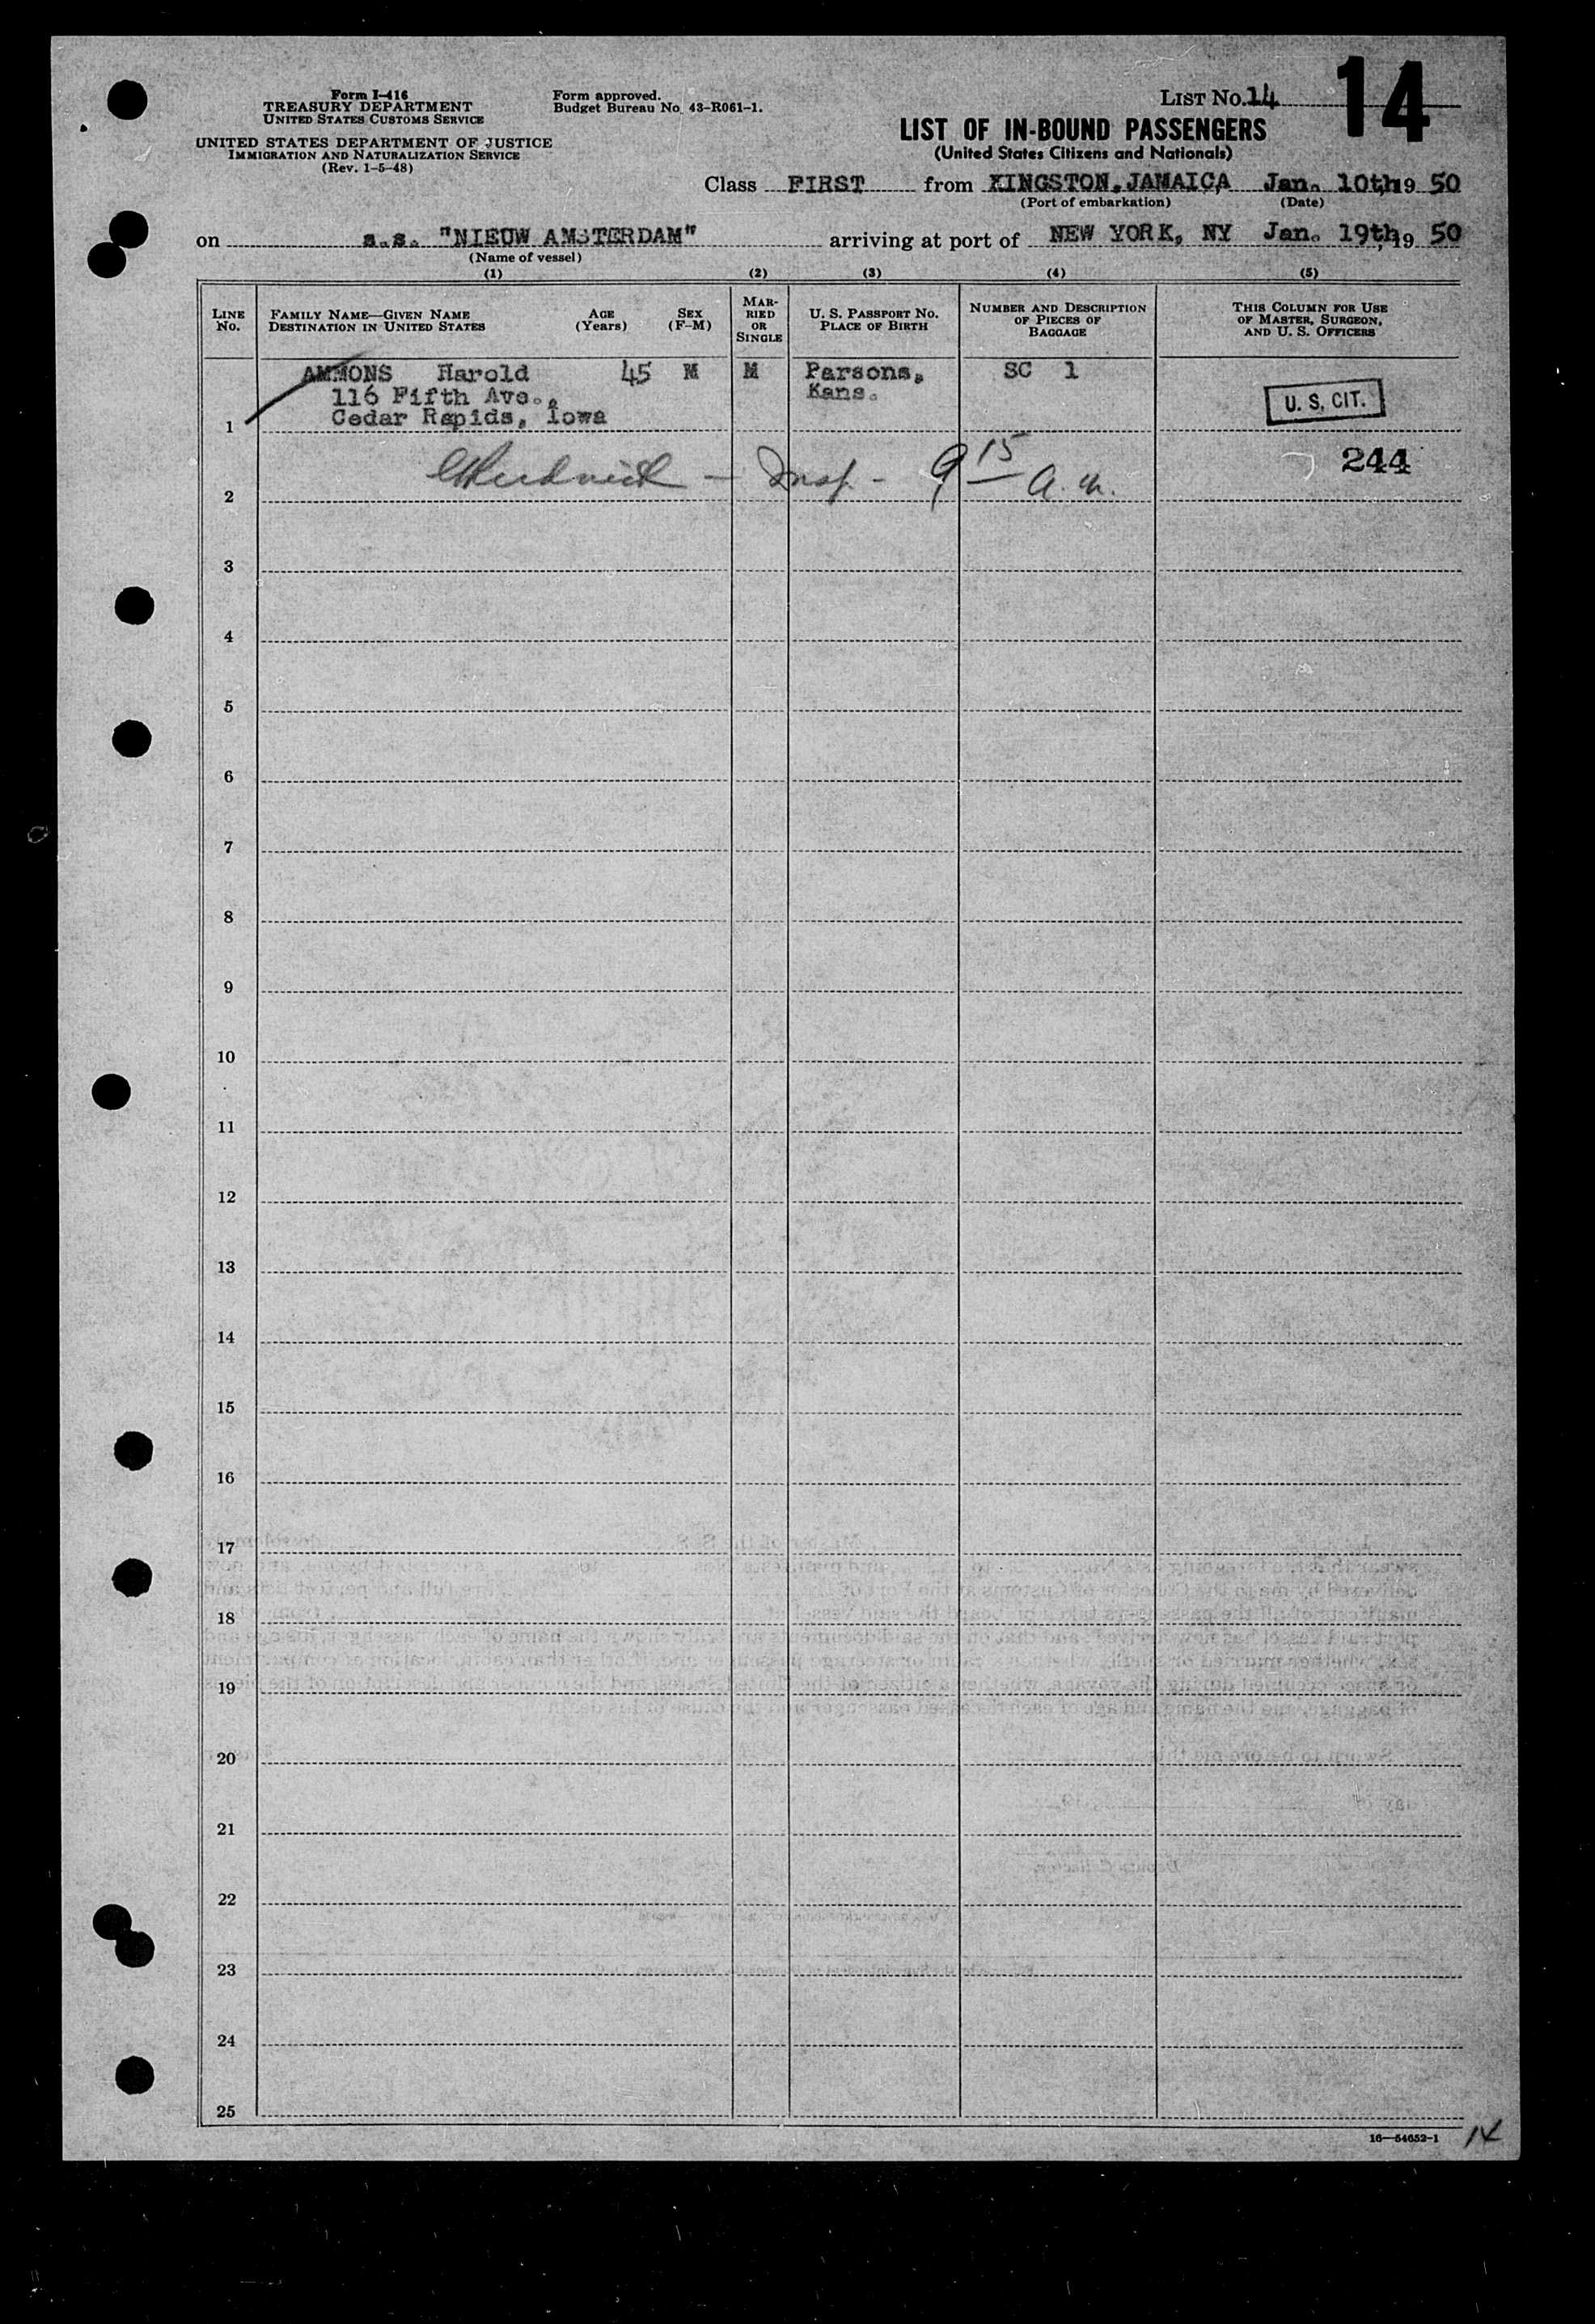 Form I-416
TREASURY DEPARTMENT
UNITED STATES CUSTOMS SERVICE
UNITED STATES DEPARTMENT OF JUSTICE
IMMIGRATION AND NATURALIZATION SERVICE
(Rev. 1-5-48)
Form approved.
Budget Bureau No. 43-R061-1.
LIST No. 14
14
LIST OF IN-BOUND PASSENGERS
(United States Citizens and Nationals)
Class FIRST from KINGSTON, JAMAICA Jan. 10th, 19 50
(Port of embarkation) (Date)
on s.s. "NIEUW AMSTERDAM" arriving at port of NEW YORK, NY Jan. 19th, 19 50
(Name of vessel)
(1) (2) (3) (4) (5)
LINE No. FAMILY NAME—GIVEN NAME DESTINATION IN UNITED STATES AGE (Years) SEX (F-M) MARRIED OR SINGLE U. S. PASSPORT NO. PLACE OF BIRTH NUMBER AND DESCRIPTION OF PIECES OF BAGGAGE THIS COLUMN FOR USE OF MASTER, SURGEON, AND U. S. OFFICERS
AMMONS Harold 45 M M Parsons, SC 1
116 Fifth Ave., Kans. U. S. CIT.
1 Cedar Rapids, Iowa
244
2 Insp - 9 15 a.m.
3
4
5
6
7
8
9
10
11
12
13
14
15
16
17
18
19
20
21
22
23
24
25
16—54652-1 14